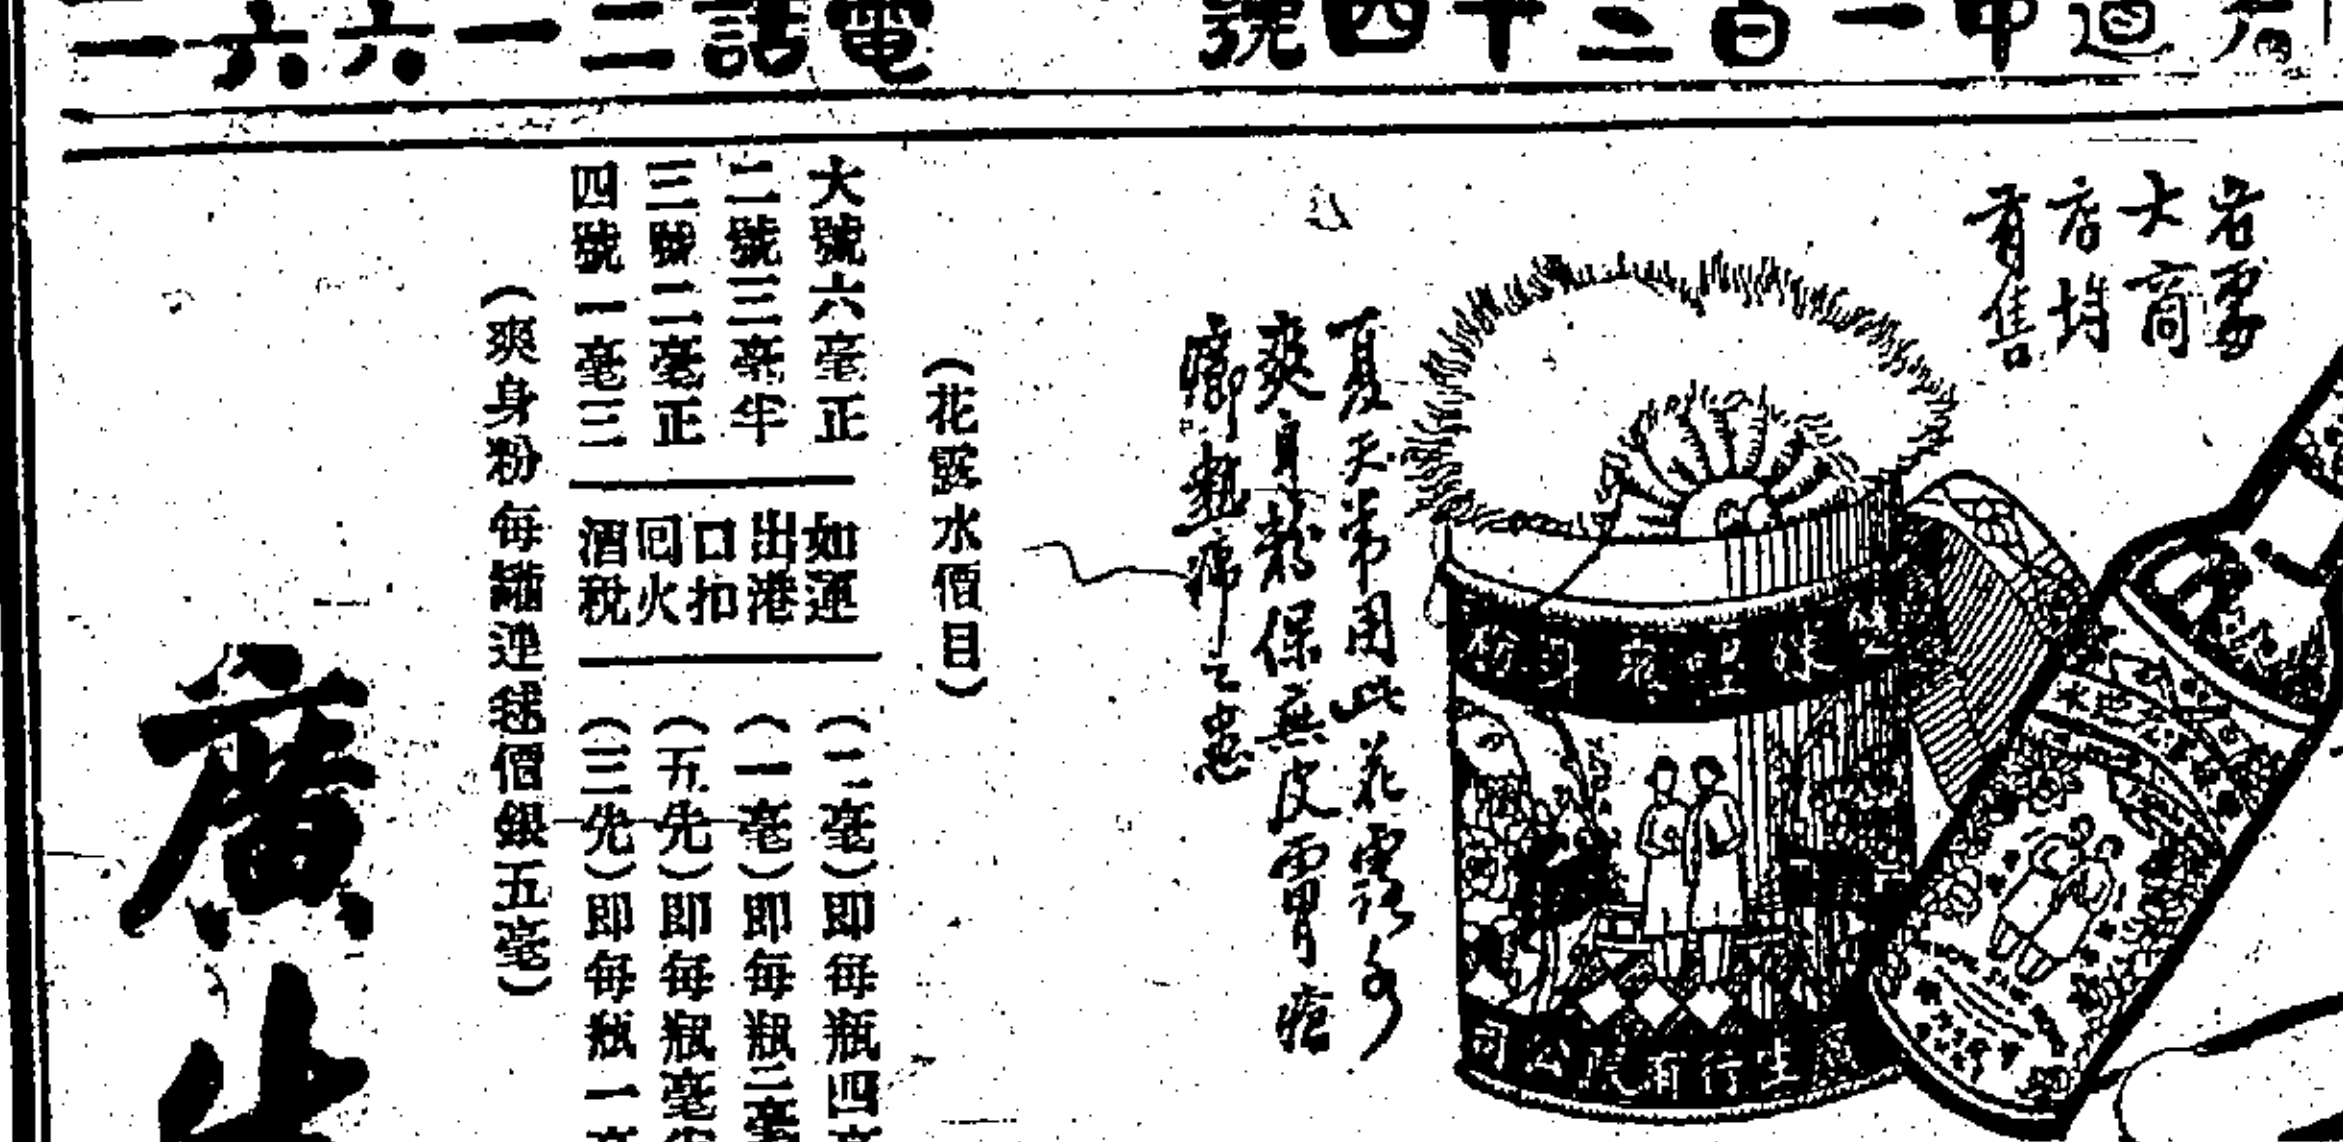 道中一百三十四號
電話二一六六一
各處
大商
店均
有售
夏天常用此花露水
爽身粉保無皮膚痕
癢熱痱之患
（花露水價目）
大號六毫正
二號三毫半
三號二毫正
四號一毫三
如運
出港
口扣
回火
酒稅
（二毫）即每瓶四
（一毫）即每瓶二毫
（五先）即每瓶毫半
（三先）即每瓶一
（爽身粉每罐連毬價銀五毫）
廣生
廣生行有限公司